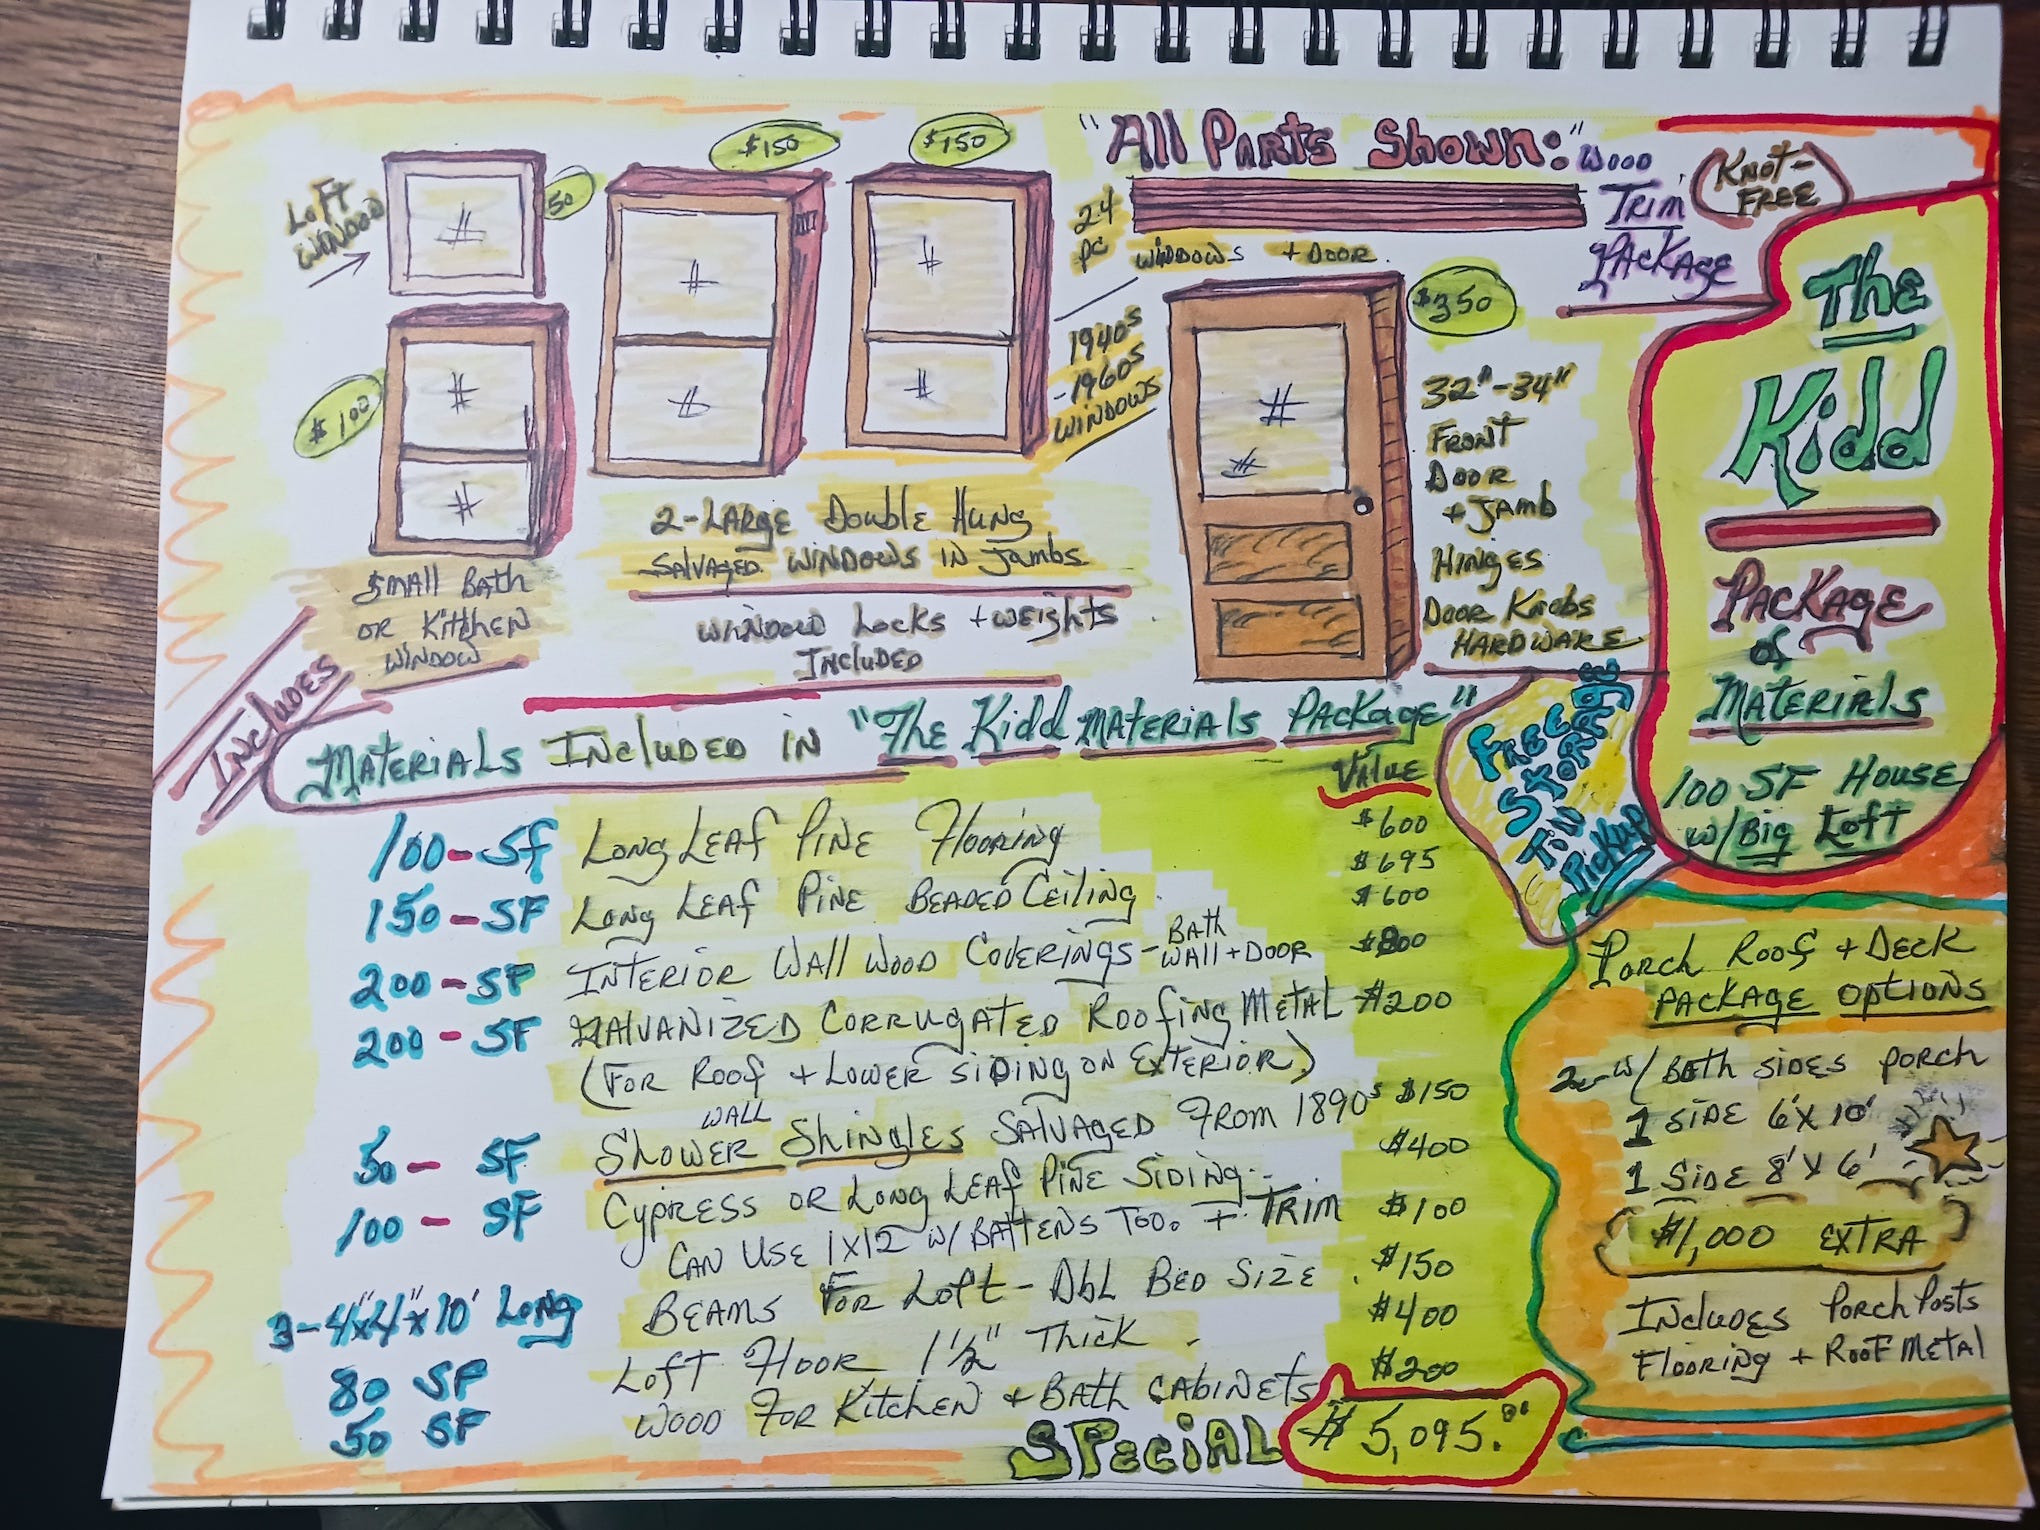 "All Parts Shown:"
Wood
Trim
Package
Knot-
Free
24
pc
Windows + Door.
Loft
Window
50
$150
$150
$100
$350
1940s
-1960s
Windows
32"-34"
Front
Door
+ Jamb
Hinges
Door Knobs
Hardware
2-Large Double Hung
Salvaged Windows in Jambs
Window Locks + Weights
Included
Small Bath
or Kitchen
Window
The
Kidd
Package
of
Materials
100 SF House
w/Big Loft
Free
Storage
Til
Pickup
Includes
Materials Included in "The Kidd Materials Package"
Value
100-Sf Long Leaf Pine Flooring $600
150-SF Long Leaf Pine Beaded Ceiling. $695
200-SF Interior Wall Wood Coverings - Bath Wall + Door $600
$800
200-SF Galvanized Corrugated Roofing Metal $200
(For Roof + Lower Siding on Exterior)
50-SF Shower Wall Shingles Salvaged From 1890s $150
100-SF Cypress or Long Leaf Pine Siding. $400
Can Use 1x12 w/ Battens Too. + Trim $100
3-4"x4"x10' Long Beams For Loft - Dbl Bed Size. $150
80 SF Loft Floor 1½" Thick $400
50 SF Wood For Kitchen + Bath Cabinets $200
Special $5,095.00
Porch Roof + Deck
Package Options
w/ Both Sides Porch
1 Side 6'x10'
1 Side 8'x6'
$1,000 Extra
Includes Porch Posts
Flooring + Roof Metal